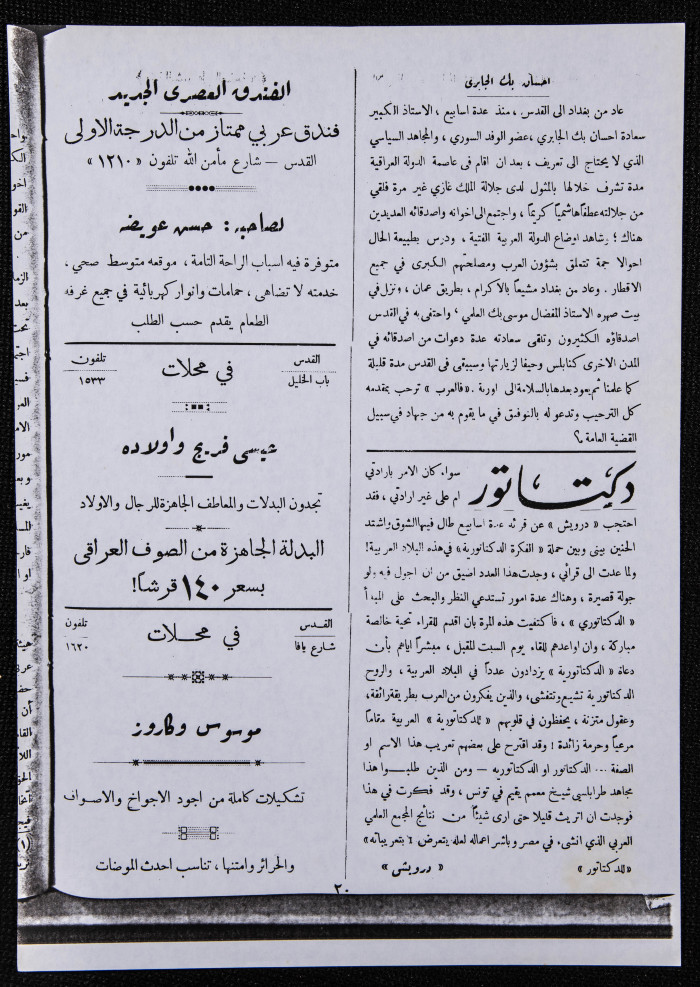 احسان بك الجابري
عاد من بغداد الى القدس ، منذ عدة اسابيع ، الاستاذ الكبير
سعادة احسان بك الجابري ، عضو الوفد السوري ، والمجاهد السياسي
الذي لا يحتاج الى تعريف ، بعد ان اقام في عاصمة الدولة العراقية
مدة تشرف خلالها بالمثول لدى جلالة الملك غازي غير مرة فلقي
من جلالته عطفاً هاشمياً كريماً ، واجتمع الى اخوانه واصدقائه العديدين
هناك ؛ وشاهد اوضاع الدولة العربية الفتية ، ودرس بطبيعة الحال
احوالا جمة تتعلق بشؤون العرب ومصلحتهم الكبرى في جميع
الاقطار . وعاد من بغداد مشيعاً بالاكرام ، بطريق عمان ، ونزل في
بيت صهره الاستاذ المفضال موسى بك العلمي ، واحتفى به في القدس
اصدقاؤه الكثيرون وتلقى سعادته عدة دعوات من اصدقائه في
المدن الاخرى كنابلس وحيفا لزيارتها وسيبقى في القدس مدة قليلة
كما علمنا ثم يعود بعدها بالسلامة الى اوربة . « فالعرب » ترحب بمقدمه
كل الترحيب وتدعو له بالتوفيق في ما يقوم به من جهاد في سبيل
القضية العامة ؟
دكتاتور
سواء كان الامر بارادتي
ام على غير ارادتي ، فقد
احتجب « درويش » عن قرائه عدة اسابيع طال فيها الشوق واشتد
الحنين بيني وبين حملة « الفكرة الدكتاتورية » في هذه البلاد العربية !
ولما عدت الى قرائي ، وجدت هذا العدد اضيق من ان اجول فيه ولو
جولة قصيرة ، وهناك عدة امور تستدعي النظر والبحث على المبدأ
« الدكتاتوري » ، فاكتفيت هذه المرة بان اقدم للقراء تحية خالصة
مباركة ، وان اواعدهم للقاء يوم السبت المقبل ، مبشراً اياهم بأن
دعاة « الدكتاتورية » يزدادون عدداً في البلاد العربية ، والروح
الدكتاتورية تشيع وتتفشى ، والذين يفكرون من العرب بطريقة رائقة ،
وعقول متزنة ، يحفظون في قلوبهم « للدكتاتورية » العربية مقاماً
مرعياً وحرمة زائدة ! وقد اقترح على بعضهم تعريب هذا الاسم او
الصفة ... الدكتاتور او الدكتاتورية — ومن الذين طلبوا هذا
مجاهد طرابلسي شيخ معمم يقيم في تونس ، وقد فكرت في هذا
فوجدت ان اتريث قليلا حتى ارى شيئاً من نتائج المجمع العلمي
العربي الذي انشىء في مصر وباشر اعماله لعله يتعرض بتعريباته
« للدكتاتور » « درويش »
الفندق العصري الجديد
فندق عربي ممتاز من الدرجة الاولى
القدس — شارع مأمن الله تلفون « ١٢١٠ »
لصاحبه : حسن عويضه
متوفرة فيه اسباب الراحة التامة ، موقعه متوسط صحي ،
خدمته لا تضاهى ، حمامات وانوار كهربائية في جميع غرفه
الطعام يقدم حسب الطلب
القدس
باب الخليل
في محلات
تلفون
١٥٣٣
عيسى فريج واولاده
تجدون البدلات والمعاطف الجاهزة للرجال والاولاد
البدلة الجاهزة من الصوف العراقي
بسعر ١٤٠ قرشاً !
القدس
شارع يافا
في محلات
تلفون
١٦٢٠
موسوس وكاروز
تشكيلات كاملة من اجود الاجواخ والاصواف
والحرائر وامتنها ، تناسب احدث الموضات
٢٠